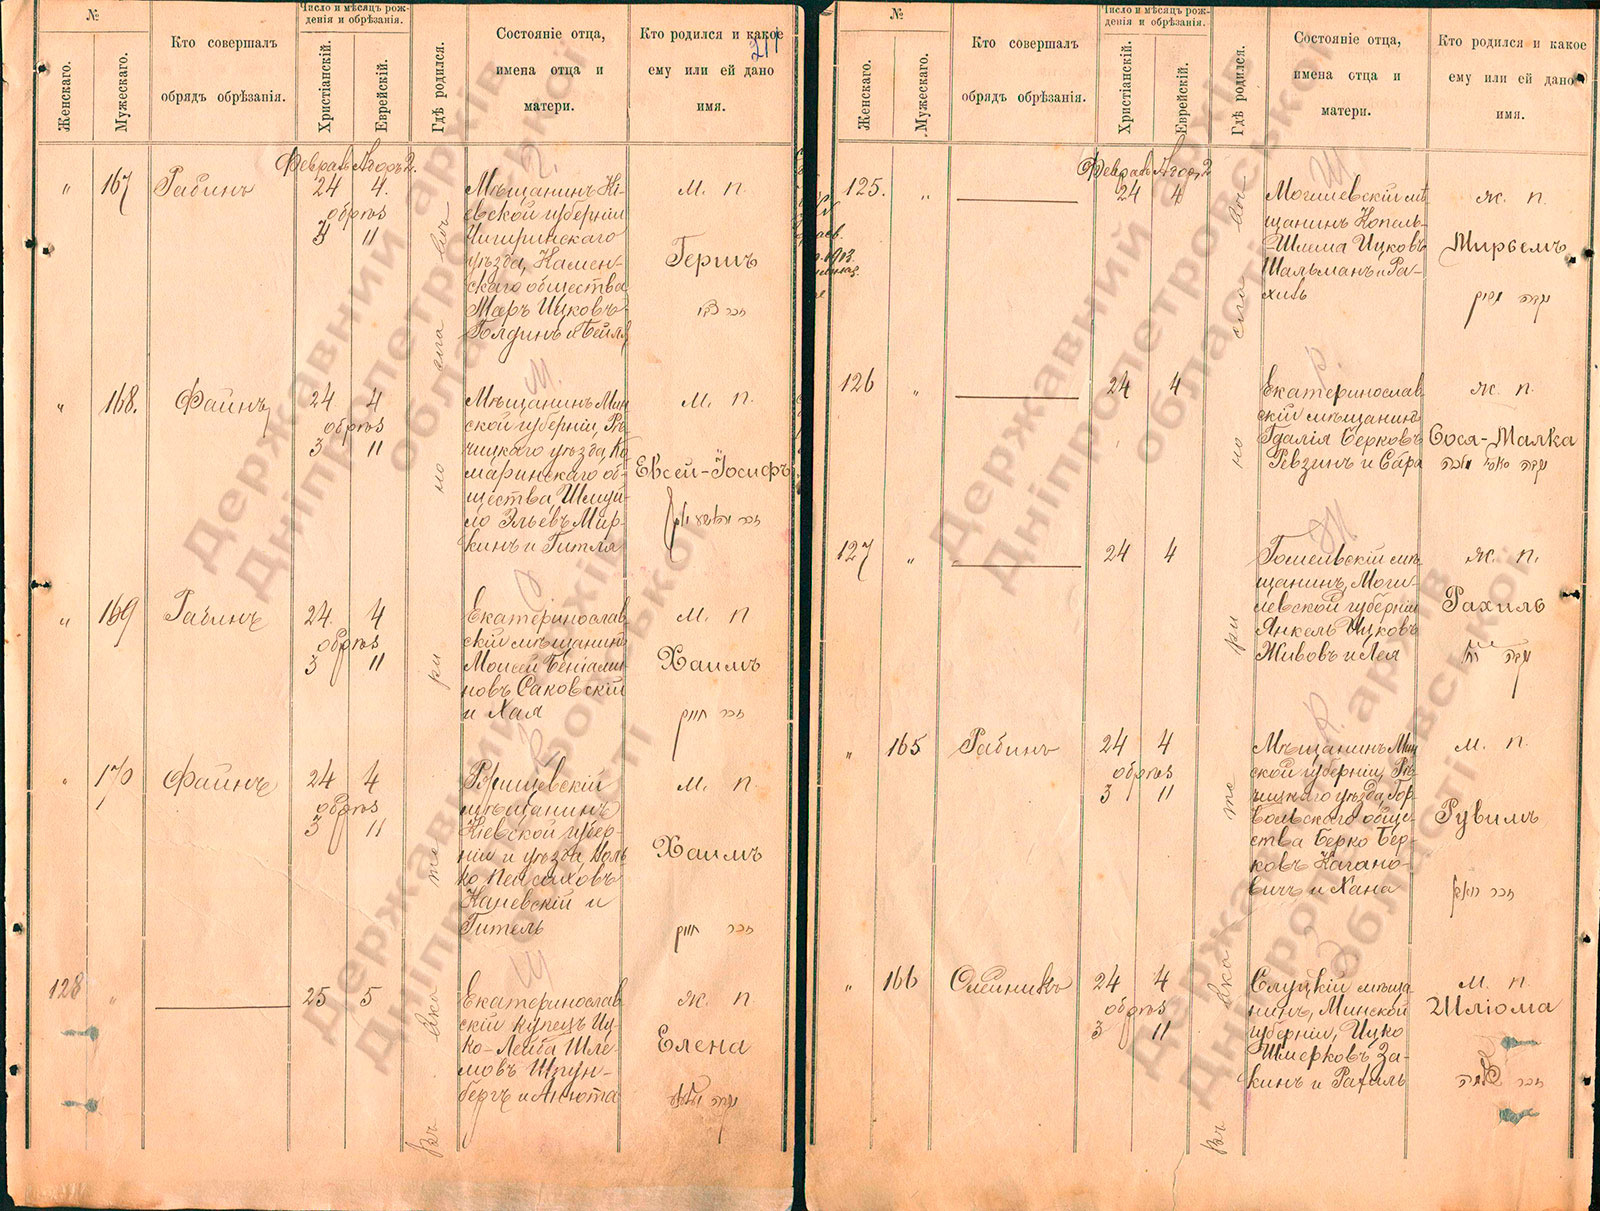 №
Женскаго.
Мужескаго.
Кто совершалъ
обрядъ обрѣзанія.
Число и мѣсяцъ рож-
денія и обрѣзанія.
Христіанскій.
Еврейскій.
Гдѣ родился.
Состояніе отца,
имена отца и
матери.
Кто родился и какое
ему или ей дано
имя.
211
Февраль Адоръ 2.
" 167 Рабинъ 24 4.
обрѣз
3 11
Мѣщанинъ Кі-
евской губерніи
Чигиринскаго
уѣзда, Камен-
скаго общества
Мэръ Ицковъ
Голдинъ и Бейля
м. п.
Гершъ
" 168. Файнъ 24 4
обрѣз
3 11
Мѣщанинъ Мин
ской губерніи, Рѣ-
чицкаго уѣзда, Ко
маринскаго об-
щества Шмуй-
ло Эльевъ Мир-
кинъ и Гитля
м. п.
Евсей-Іосифъ
" 169 Рабинъ 24. 4
обрѣз
3 11
Екатеринослав
скій мѣщанинъ
Моисей Беніами
новъ Саковскій
и Хая
м. п
Хаимъ
" 170 Файнъ 24 4
обрѣз
3 11
Ржищевскій
мѣщанинъ
Кіевской губер-
ніи и уѣзда, Иоль
ко Пейсаховъ
Каневскій и
Гитель
м. п
Хаимъ
128 " 25 5
Екатеринослав
скій купецъ Иц-
ко-Лейба Шле-
мовъ Шпун-
бергъ и Анюта
ж. п
Елена
Въ Екатеринославѣ
№
Женскаго.
Мужескаго.
Кто совершалъ
обрядъ обрѣзанія.
Число и мѣсяцъ рож-
денія и обрѣзанія.
Христіанскій.
Еврейскій.
Гдѣ родился.
Состояніе отца,
имена отца и
матери.
Кто родился и какое
ему или ей дано
имя.
Февраль Адоръ 2
125. " 24 4
Могилевскій мѣ
щанинъ Копель-
Шлема Ицковъ
Шальманъ и Ра-
хиль
ж. п.
Мирьемъ
126 24 4
Екатеринослав
скій мѣщанинъ
Гдалія Берковъ
Ревзинъ и Сара
ж. п.
Сося-Малка
127 " 24 4
Гомельскій мѣ
щанинъ, Моги-
левской губерніи
Янкель Ицковъ
Живовъ и Лея
ж. п.
Рахиль
" 165 Рабинъ 24 4
обрѣз
3 11
Мѣщанинъ Мин
ской губерніи, Рѣ
чицкаго уѣзда, Гор
вольскаго обще-
ства Берко Бер-
ковъ Кагано-
вичъ и Хана
м. п.
Рувимъ
" 166 Олейникъ 24 4
обрѣз
3 11
Слуцкій мѣща
нинъ, Минской
губерніи, Ицко
Шмерковъ За-
кинъ и Рахиль
м. п
Шліома
Державний архів
Дніпропетровської
області